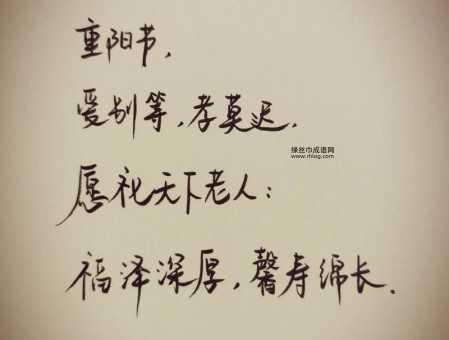 重阳节，
爱别等，孝莫迟．
绿丝巾成语网
www.rhlsg.com
愿祝天下老人：
福泽深厚，馨寿绵长．